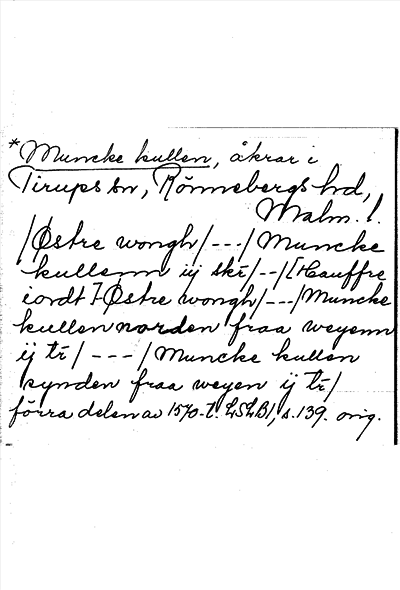 *Muncke kullen, åkrar i
Tirups sn, Rönnebergs hd,
Malm. l.
/Østre wongh/---/Muncke
kullenn iij skr/--/[Hauffre
iordt] Østre wongh/---/Muncke
kullen norden fraa weyenn
ij tr/ ---/Muncke kullen
synden fraa weyen ij tr/
förra delen av 1570-t. LSLB1, s. 139. orig.